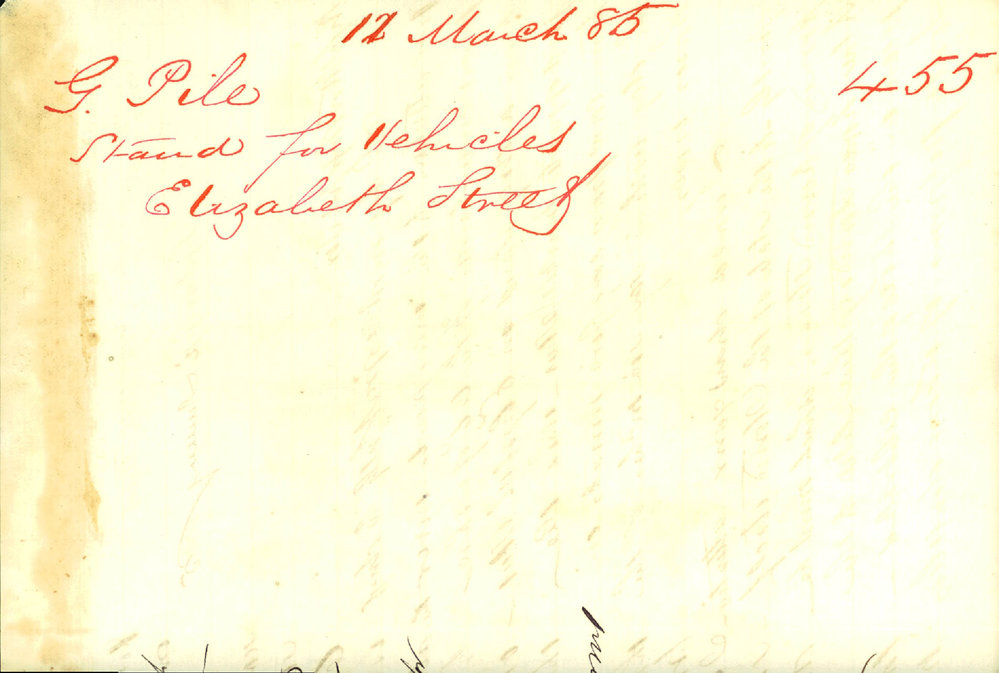 12 March 85
G. Pile 455
Stand for Vehicles
Elizabeth Street